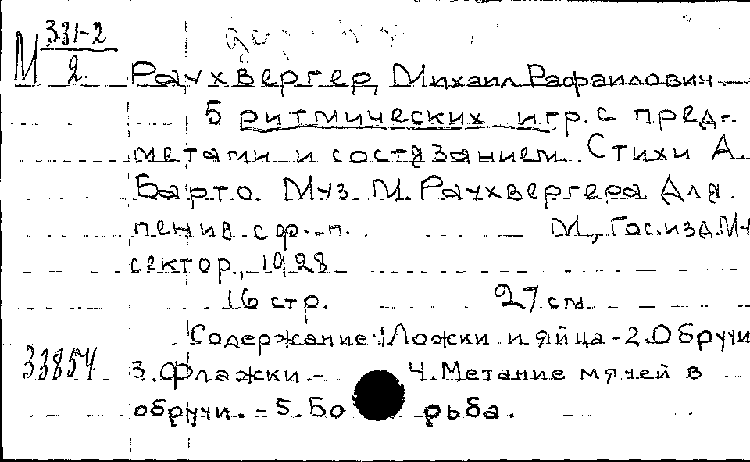 М 331-2
2
Раухвергер, Михаил Рафаилович
5 ритмических игр с пред-
метами и состязанием. Стихи А.
Барто. Муз. М. Раухвергера Для
пения с ф.-п. М., Гос. изд. Муз
сектор, 1928
16 стр. 27 см.
Содержание: 1 Ложки и яйца - 2. Обручи
33854 3. Флажки. - 4. Метание мячей в
обручи. - 5. Борьба.